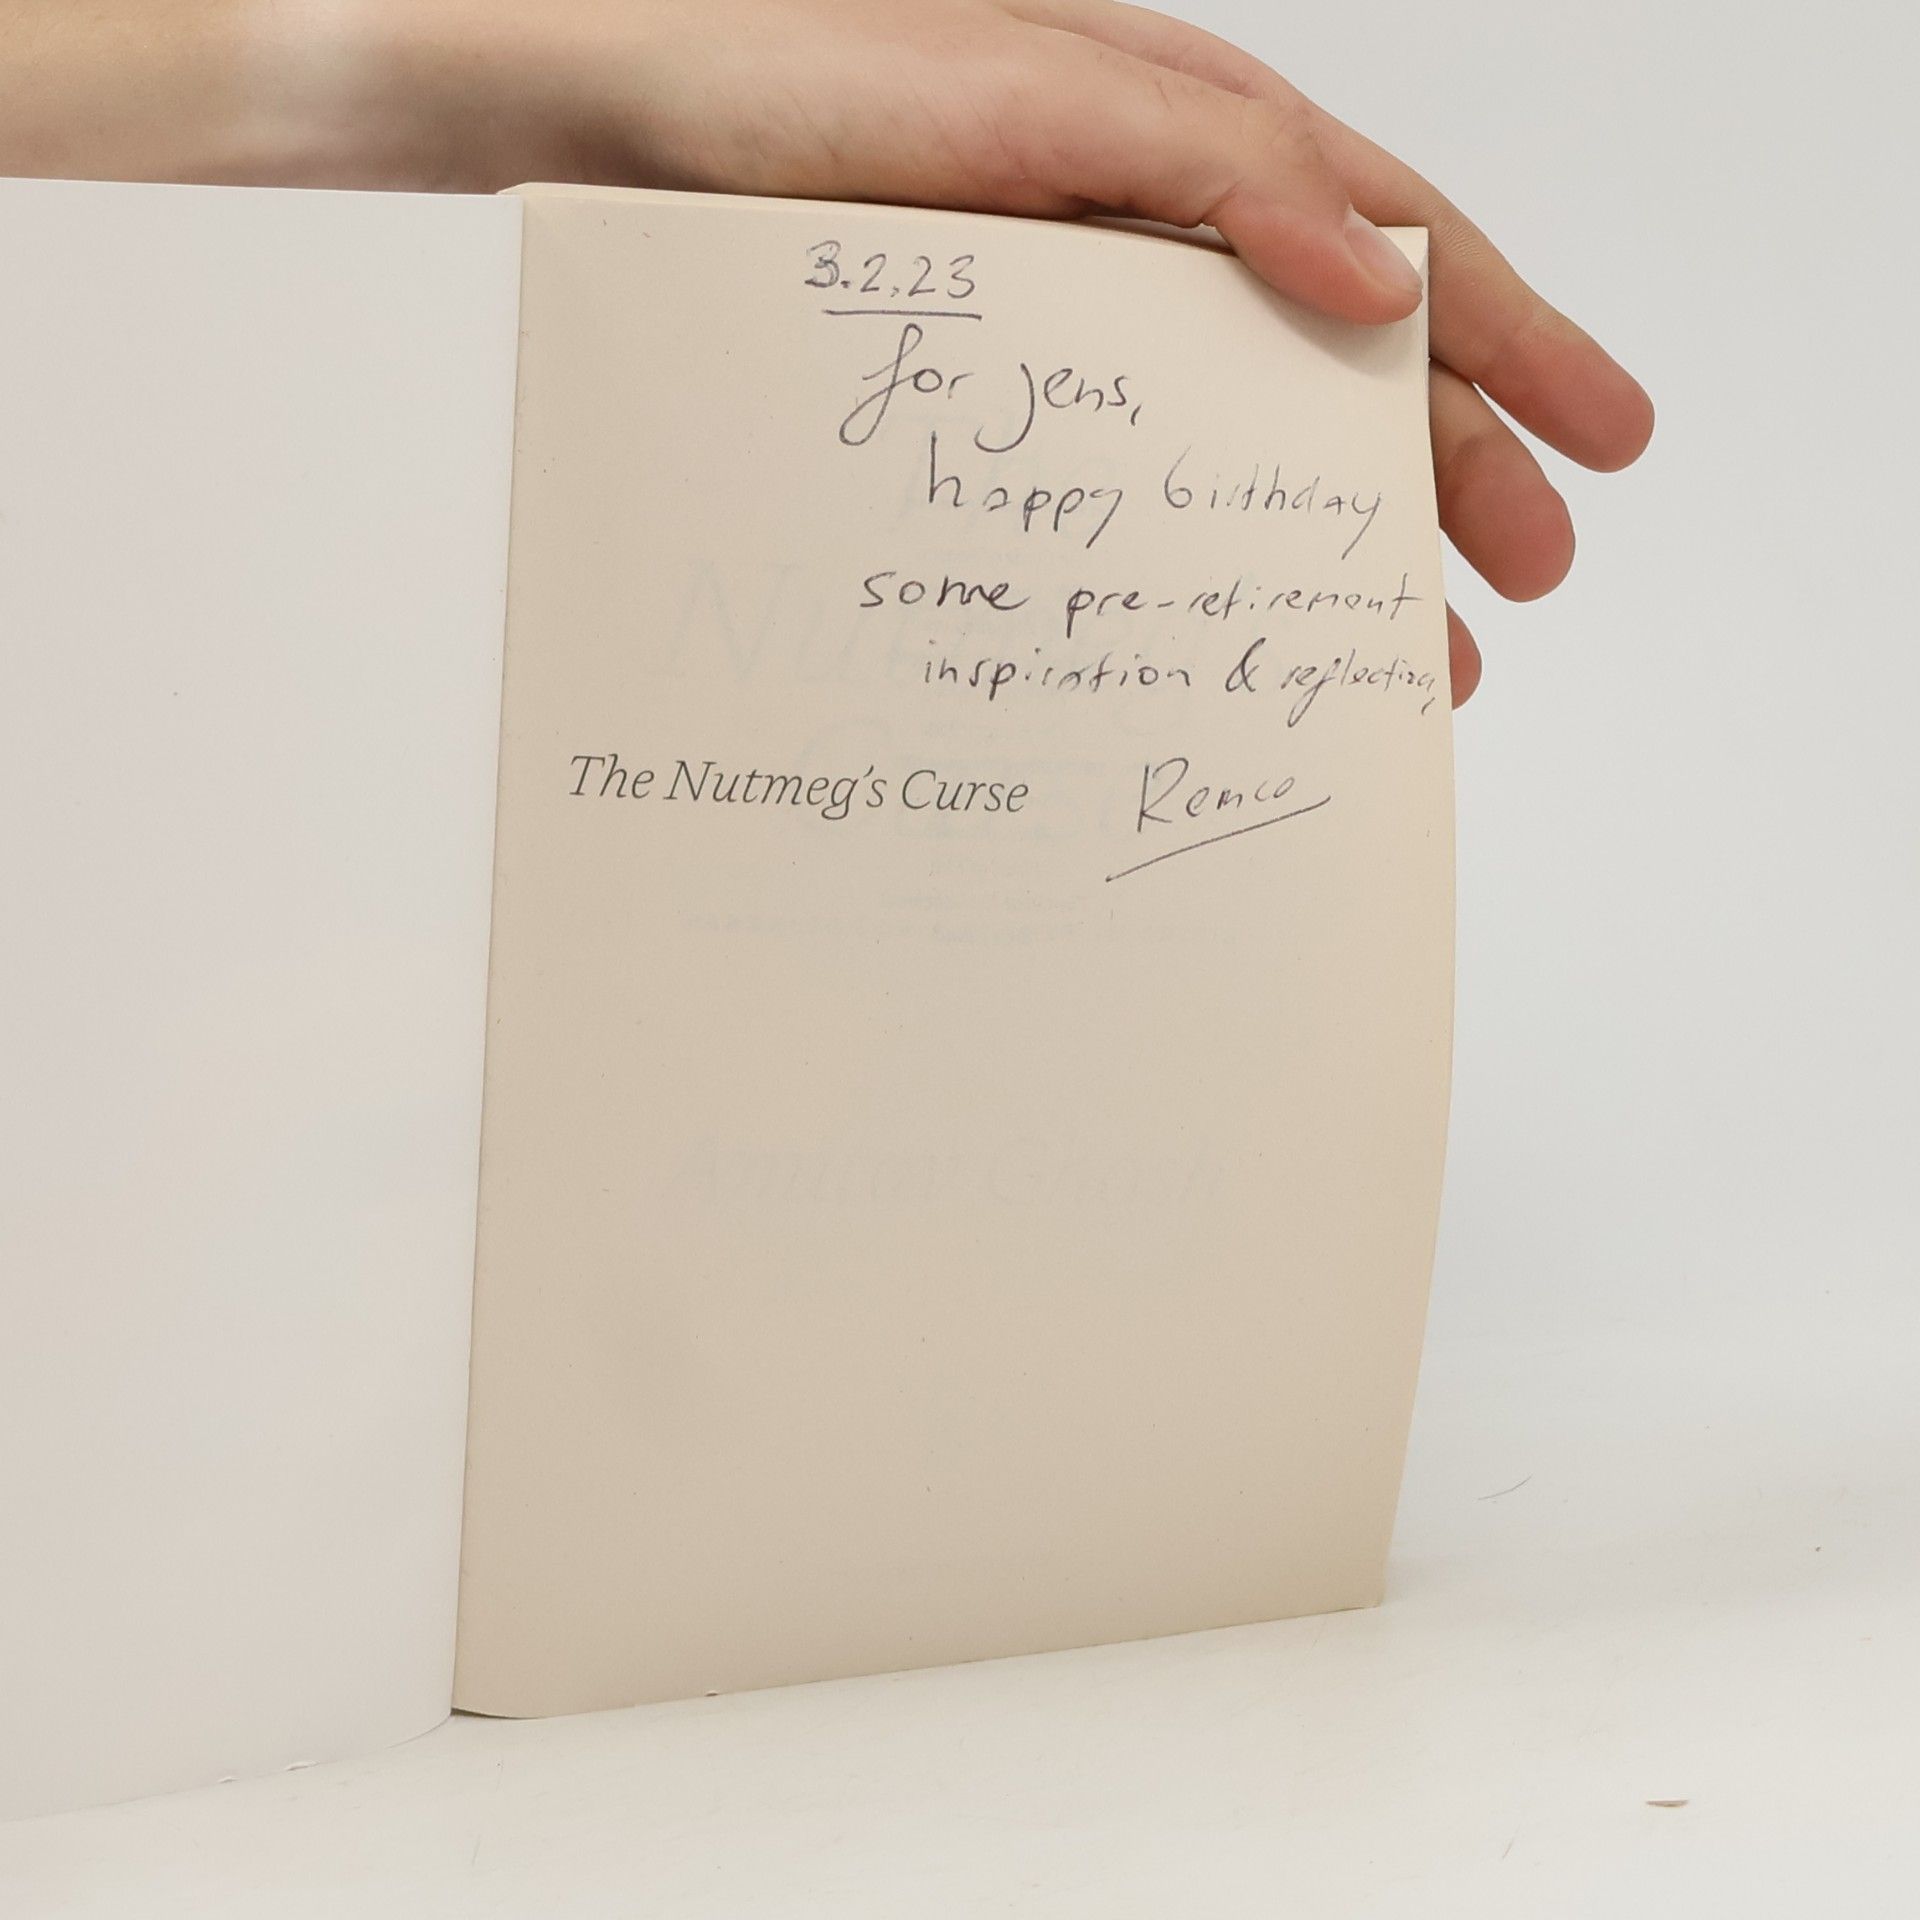 3.2.23
for jens,
happy birthday
some pre-retirement
inspiration & reflection,
The Nutmeg's Curse
Remco